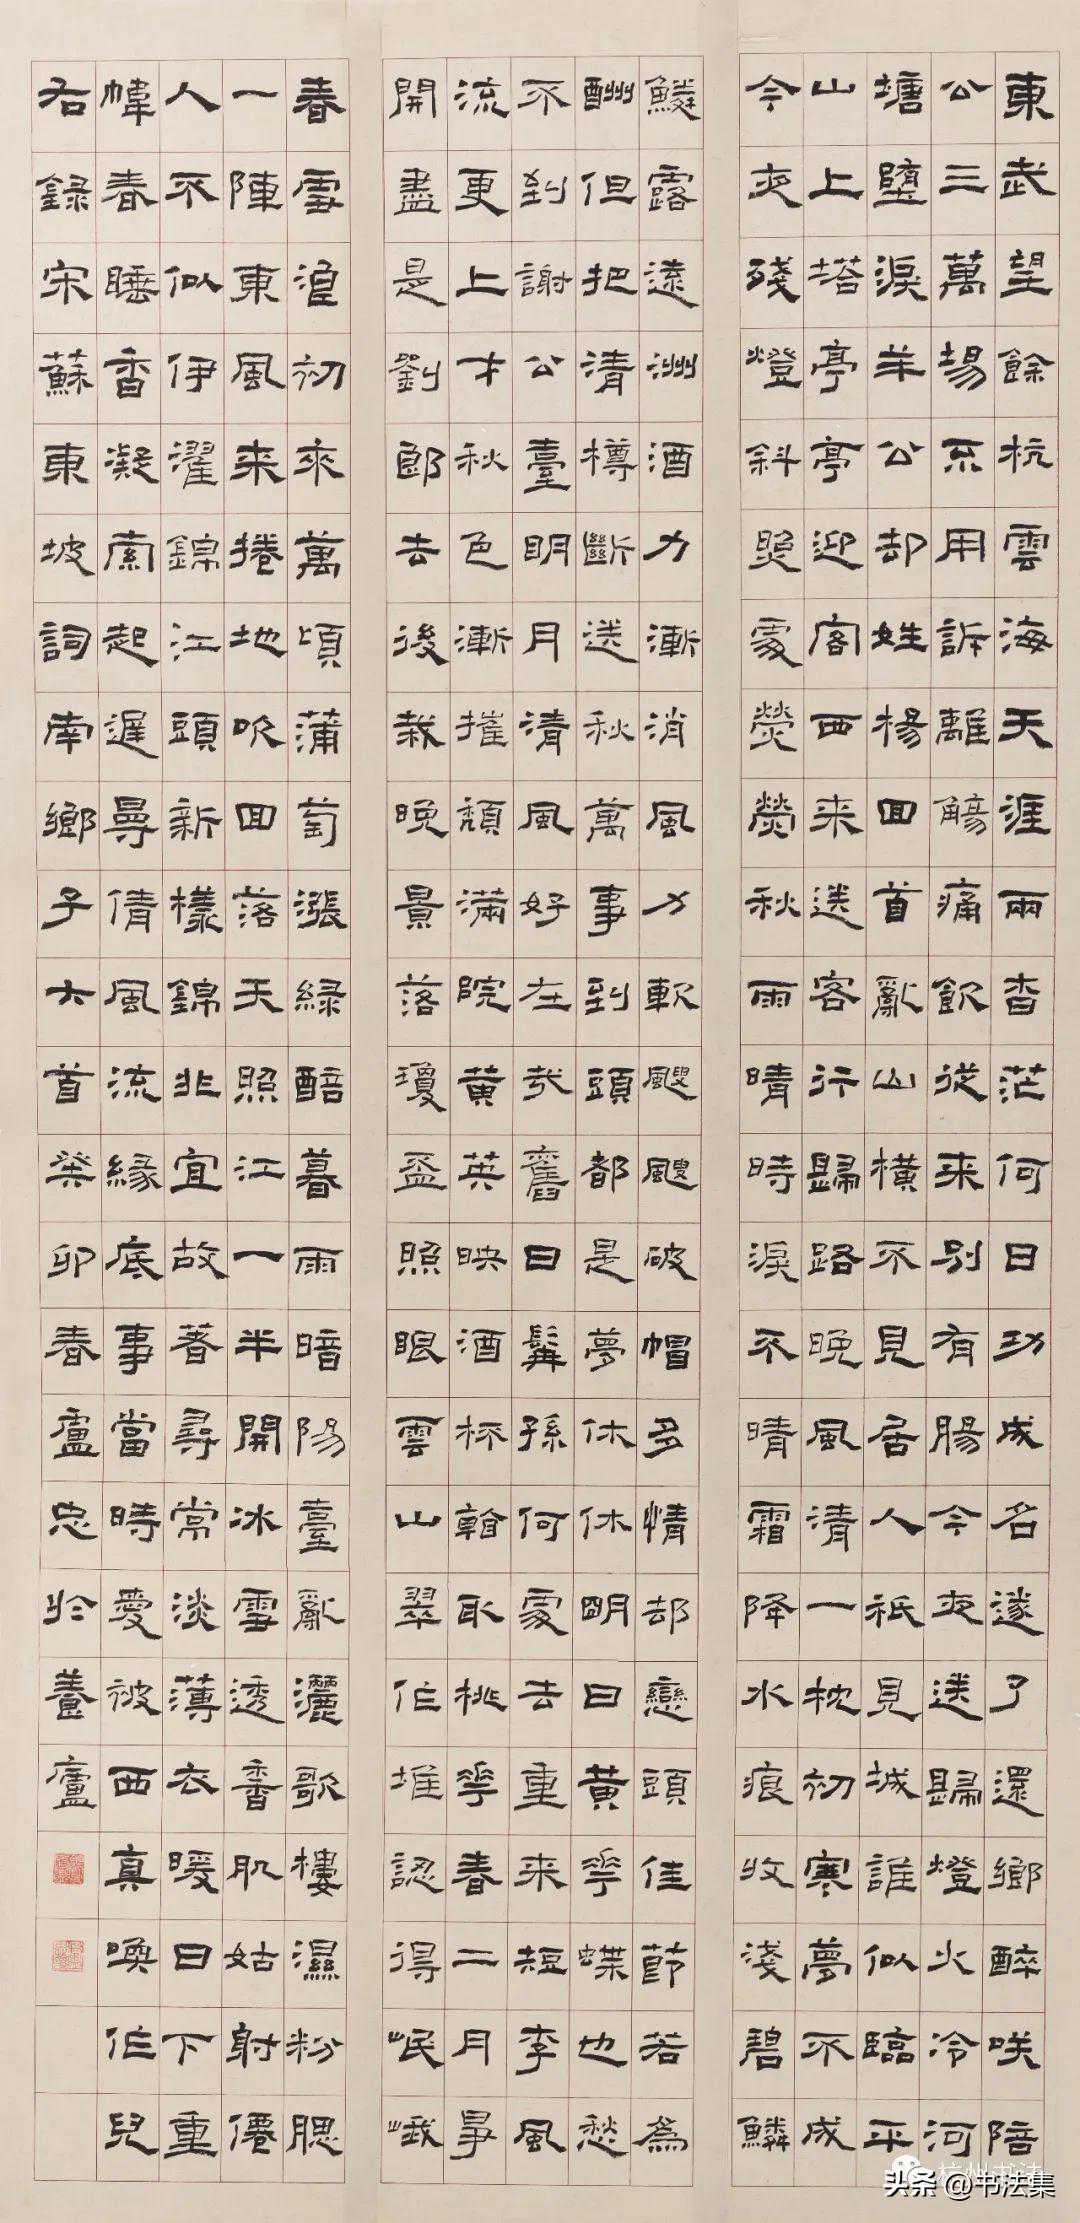 東武望餘杭雲海天涯兩杳茫何日功成名遂了還鄉醉咲陪
公三萬場不用訴離觴痛飲從来別有腸今夜送歸燈火冷河
塘墮淚羊公却姓楊回首亂山橫不見居人秖見城誰似臨平
山上塔亭亭迎客西来送客行歸路晚風清一枕初寒夢不成
今夜殘燈斜照處熒熒秋雨晴時淚不晴霜降水痕收淺碧鱗
鱗露遠洲酒力漸消風力軟颼颼破帽多情却戀頭佳節若為
酬但把清樽斷送秋萬事到頭都是夢休休明日黃花蝶也愁
不到謝公臺明月清風好在哉舊日髯孫何處去重来短李風
流更上才秋色漸摧頹滿院黃英映酒杯看取桃花春二月爭
開盡是劉郎去後栽晚景落瓊盃照眼雲山翠作堆認得岷峨
春雪浪初來萬頃蒲萄漲綠醅暮雨暗陽臺亂灑歌樓濕粉腮
一陣東風来捲地吹回落天照江一半開冰雪透香肌姑射僊
人不似伊濯錦江頭新樣錦非宜故著尋常淡薄衣暖日下重
幃春睡香凝索起遲曼倩風流緣底事當時愛被西真喚作兒
右錄宋蘇東坡詞南鄉子六首癸卯春盧忠於養廬
杭州书法
头条@书法集